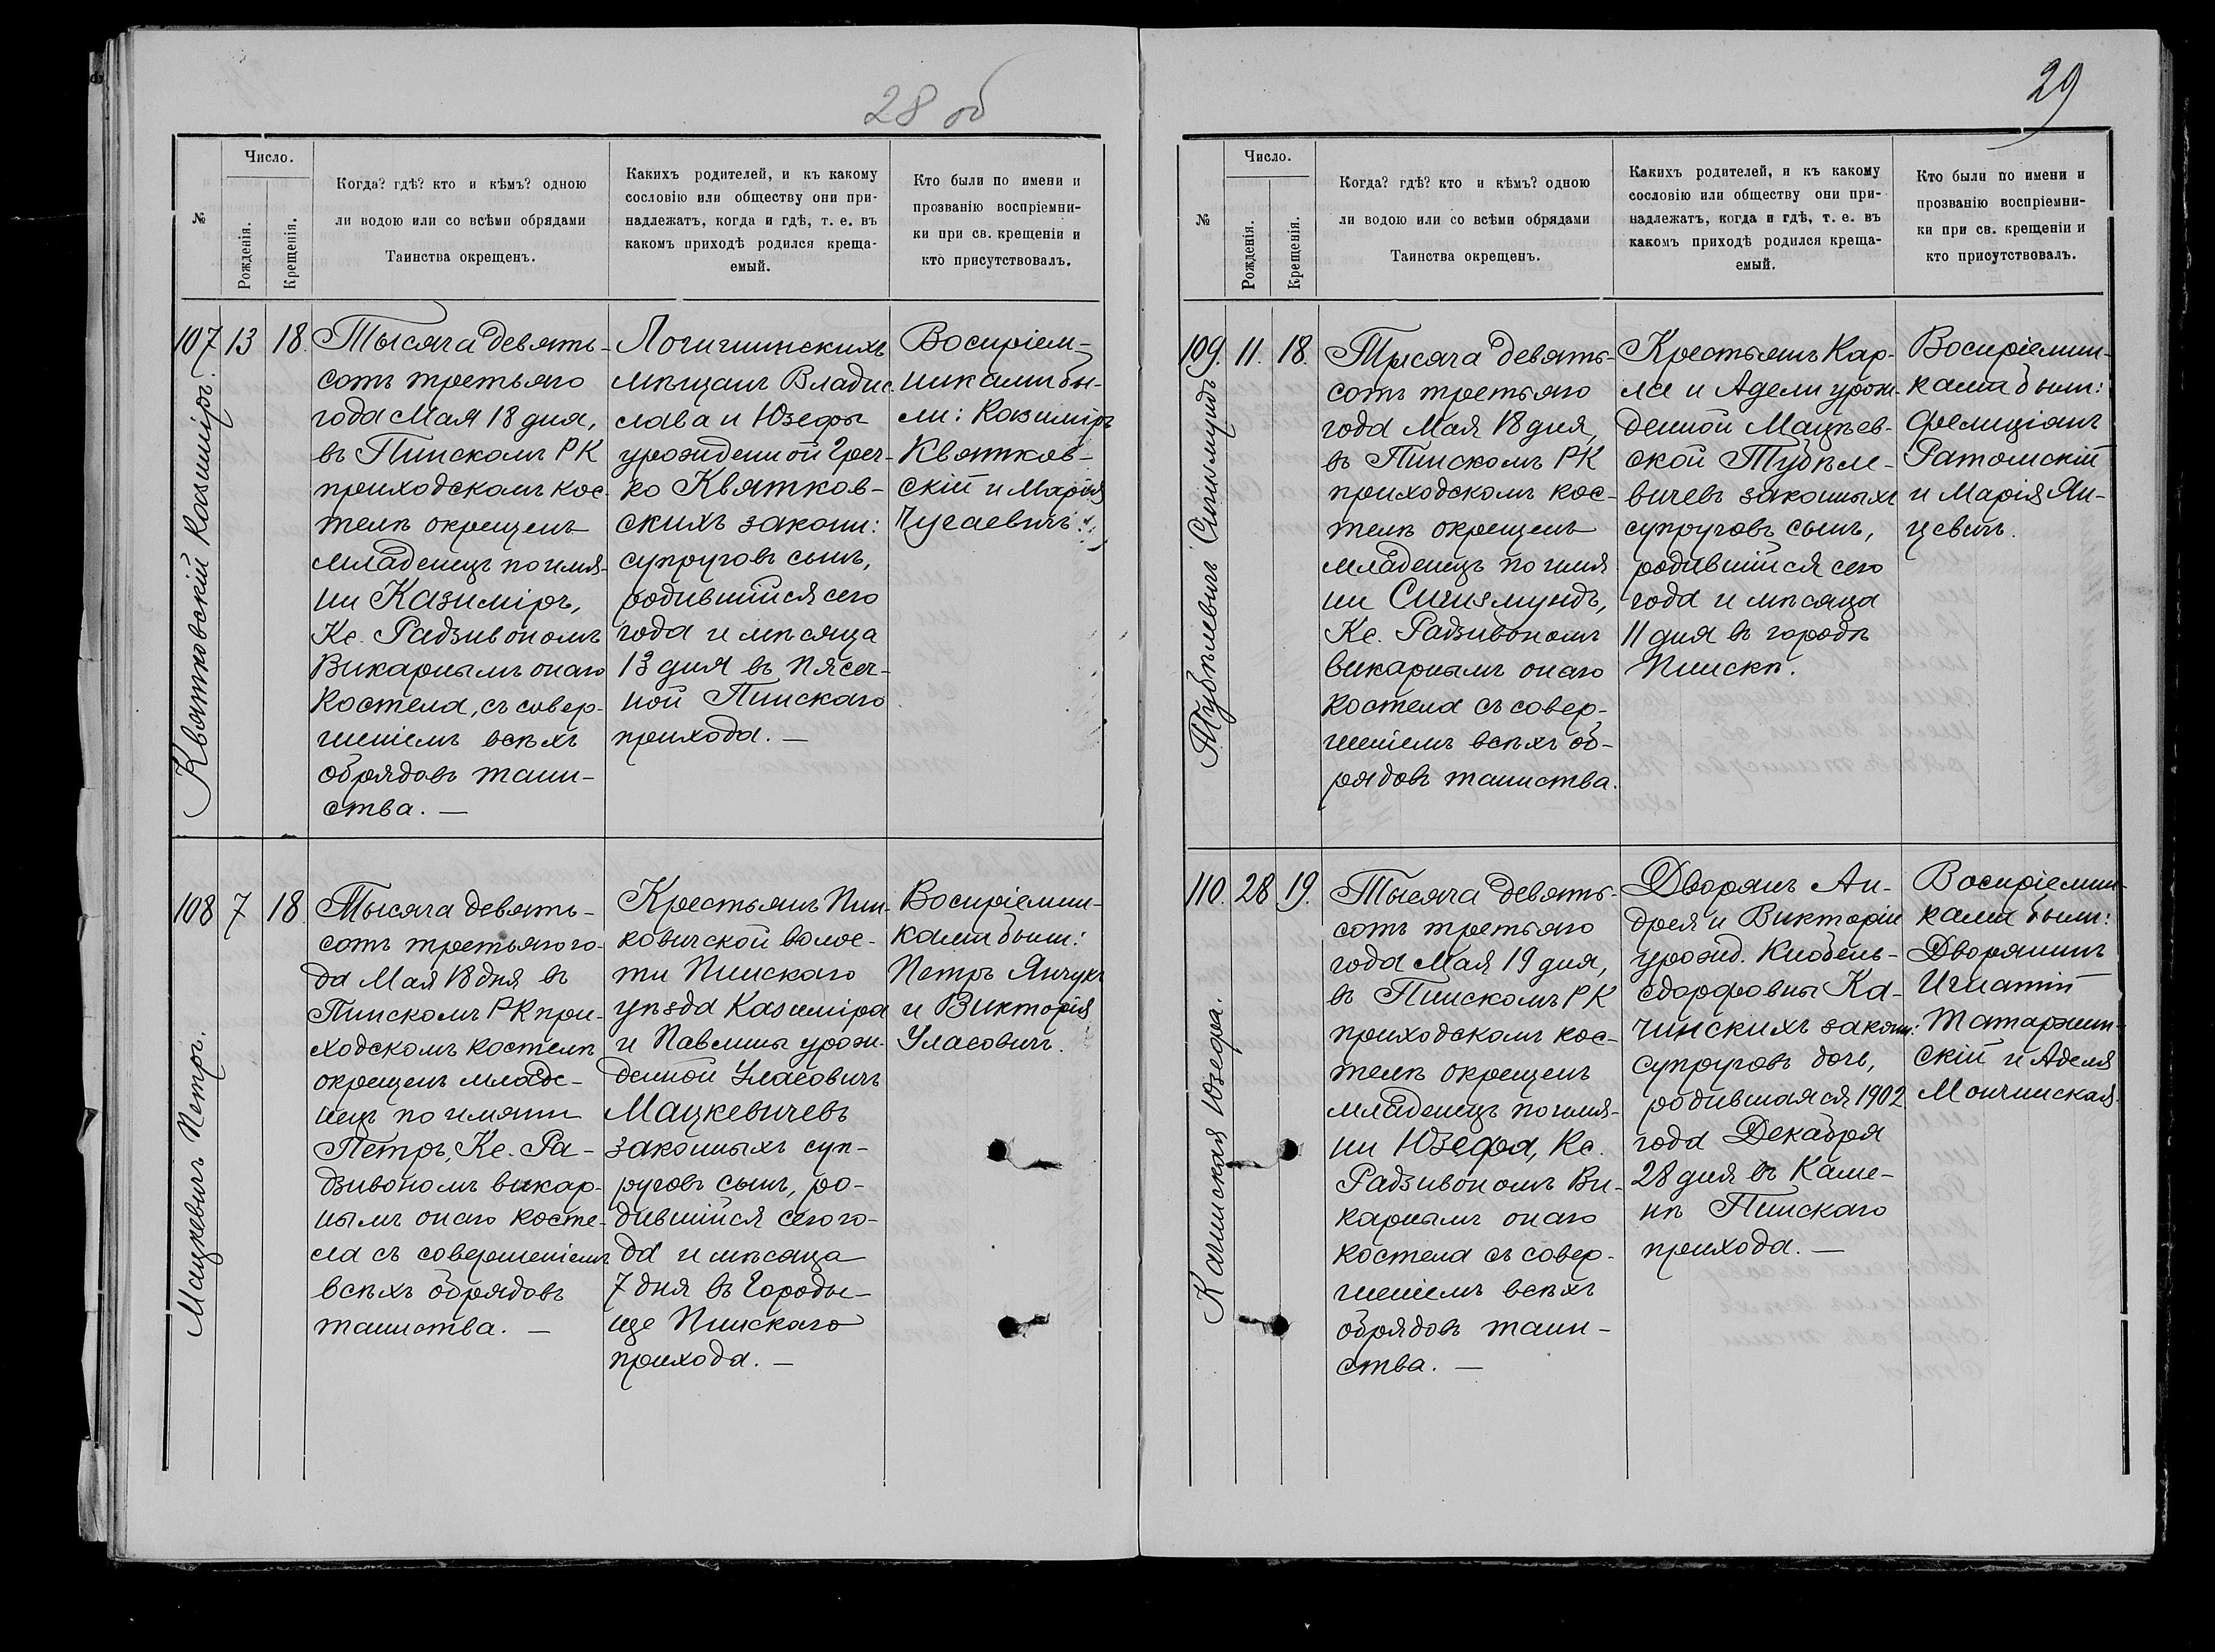 28 об
№
Число.
Рожденія.
Крещенія.
Когда? гдѣ? кто и кѣмъ? одною
ли водою или со всѣми обрядами
Таинства окрещенъ.
Какихъ родителей, и къ какому
сословію или обществу они при-
надлежатъ, когда и гдѣ, т. е. въ
какомъ приходѣ родился креща-
емый.
Кто были по имени и
прозванію воспріемни-
ки при св. крещеніи и
кто присутствовалъ.
Квятковскій Казиміръ.
107
13
18.
Тысяча девять-
сотъ третьяго
года Мая 18 дня,
въ Пинскомъ РК
приходскомъ кос-
телѣ окрещенъ
младенецъ по имя-
ни Казиміръ,
Кс. Радзивономъ
Викарнымъ онаго
костела, съ совер-
шеніемъ всѣхъ
обрядовъ таин-
ства. —
Логишинскихъ
мѣщанъ Владис-
слава и Юзефы
урожденной Греч-
ко Квятков-
скихъ законн:
супруговъ сынъ,
родившійся сего
года и мѣсяца
13 дня въ Пясеч-
ной Пинскаго
прихода. —
Воспріем-
никами бы-
ли: Казиміръ
Квятков-
скій и Марія
Чугаевичъ.
Мацкевичъ Петръ.
108
7
18.
Тысяча девять-
сотъ третьяго го-
да Мая 18 дня въ
Пинскомъ РК при-
ходскомъ костелѣ
окрещенъ младе-
нецъ по имяни
Петръ, Кс. Ра-
дзивономъ викар-
нымъ онаго косте-
ла съ совершеніемъ
всѣхъ обрядовъ
таинства. —
Крестьянъ Пин-
ковичской волос-
ти Пинскаго
уѣзда Казиміра
и Павлины урож-
денной Уласовичъ
Мацкевичевъ
законныхъ суп-
руговъ сынъ, ро-
дившійся сего го-
да и мѣсяца
7 дня въ Городи-
ще Пинскаго
прихода. —
Воспріемни-
ками были:
Петръ Янчукъ
и Викторія
Уласовичъ.
29
№
Число.
Рожденія.
Крещенія.
Когда? гдѣ? кто и кѣмъ? одною
ли водою или со всѣми обрядами
Таинства окрещенъ.
Какихъ родителей, и къ какому
сословію или обществу они при-
надлежатъ, когда и гдѣ, т. е. въ
какомъ приходѣ родился креща-
емый.
Кто были по имени и
прозванію воспріемни-
ки при св. крещеніи и
кто присутствовалъ.
Тубѣлевичъ Сигизмундъ
109.
11.
18.
Тысяча девять-
сотъ третьяго
года Мая 18 дня,
въ Пинскомъ РК
приходскомъ кос-
телѣ окрещенъ
младенецъ по имя
ни Сигизмундъ,
Кс. Радзивономъ
викарнымъ онаго
костела съ совер-
шеніемъ всѣхъ об-
рядовъ таинства.
Крестьянъ Кар-
ла и Адели урож-
денной Мацѣев-
ской Тубѣле-
вичевъ законныхъ
супруговъ сынъ,
родившійся сего
года и мѣсяца
11 дня въ городѣ
Пинскѣ.
Воспріемни-
ками были:
Фелиціанъ
Ратомскій
и Марія Ян-
цевичъ.
Качинская Юзефа.
110.
28
19.
Тысяча девять-
сотъ третьяго
года Мая 19 дня,
въ Пинскомъ РК
приходскомъ кос-
телѣ окрещенъ
младенецъ по имя-
ни Юзефа, Кс.
Радзивономъ Ви-
карнымъ онаго
костела съ совер-
шеніемъ всѣхъ
обрядовъ таин-
ства. —
Дворянъ Ан-
дрея и Викторіи
урожд. Кнобель-
сдорфовны Ка-
чинскихъ законн:
супруговъ дочь,
родившаяся 1902
года Декабря
28 дня въ Каме-
нѣ Пинскаго
прихода. —
Воспріемни-
ками были:
Дворянинъ
Игнатій
Татаржин-
скій и Аделя
Мончинская.